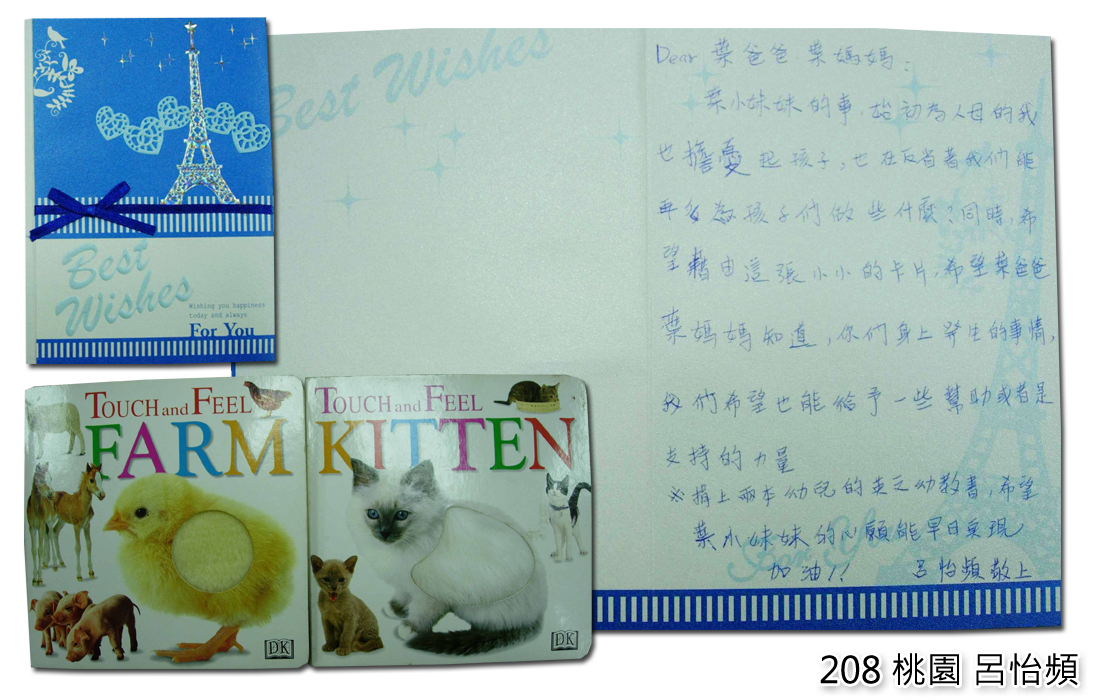 Best Wishes
Wishing you happiness
today and always
For You
Best Wishes
Dear 葉爸爸、葉媽媽：
葉小妹妹的事，始初為人母的我
也擔憂起孩子，也在反省著我們能
再多為孩子們做些什麼？同時，希
望藉由這張小小的卡片，希望葉爸爸
葉媽媽知道，你們身上發生的事情，
我們希望也能給予一些幫助或者是
支持的力量
※捐上兩本幼兒的英文幼教書，希望
葉小妹妹的心願能早日實現
加油!!
呂怡頻敬上
TOUCH and FEEL
FARM
DK
TOUCH and FEEL
KITTEN
DK
208 桃園 呂怡頻